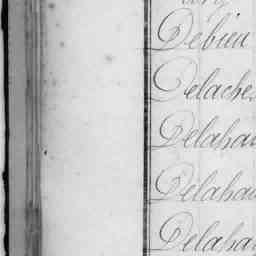 Debieu
Delaches
Delahau
Delahau
Delahau